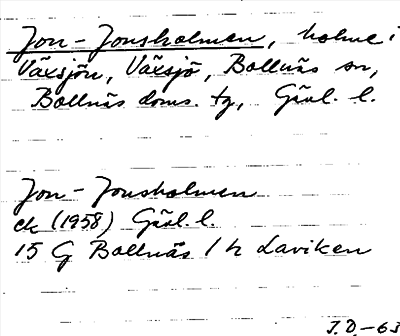 Jon-Jonsholmen, holme i
Växsjön, Växsjö, Bollnäs sn,
Bollnäs doms. tg, Gävl. l.
Jon-Jonsholmen
ek (1958) Gävl. l.
15 G Bollnäs 1 h Laviken
J.D.-63